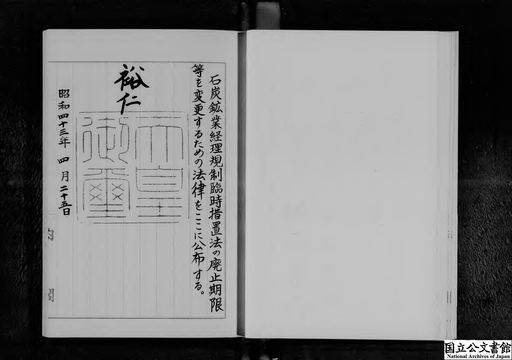 石炭鉱業経理規制臨時措置法の廃止期限
等を変更するための法律をここに公布する。
裕仁
天皇
御璽
昭和四十三年四月二十五日
国立公文書館
National Archives of Japan